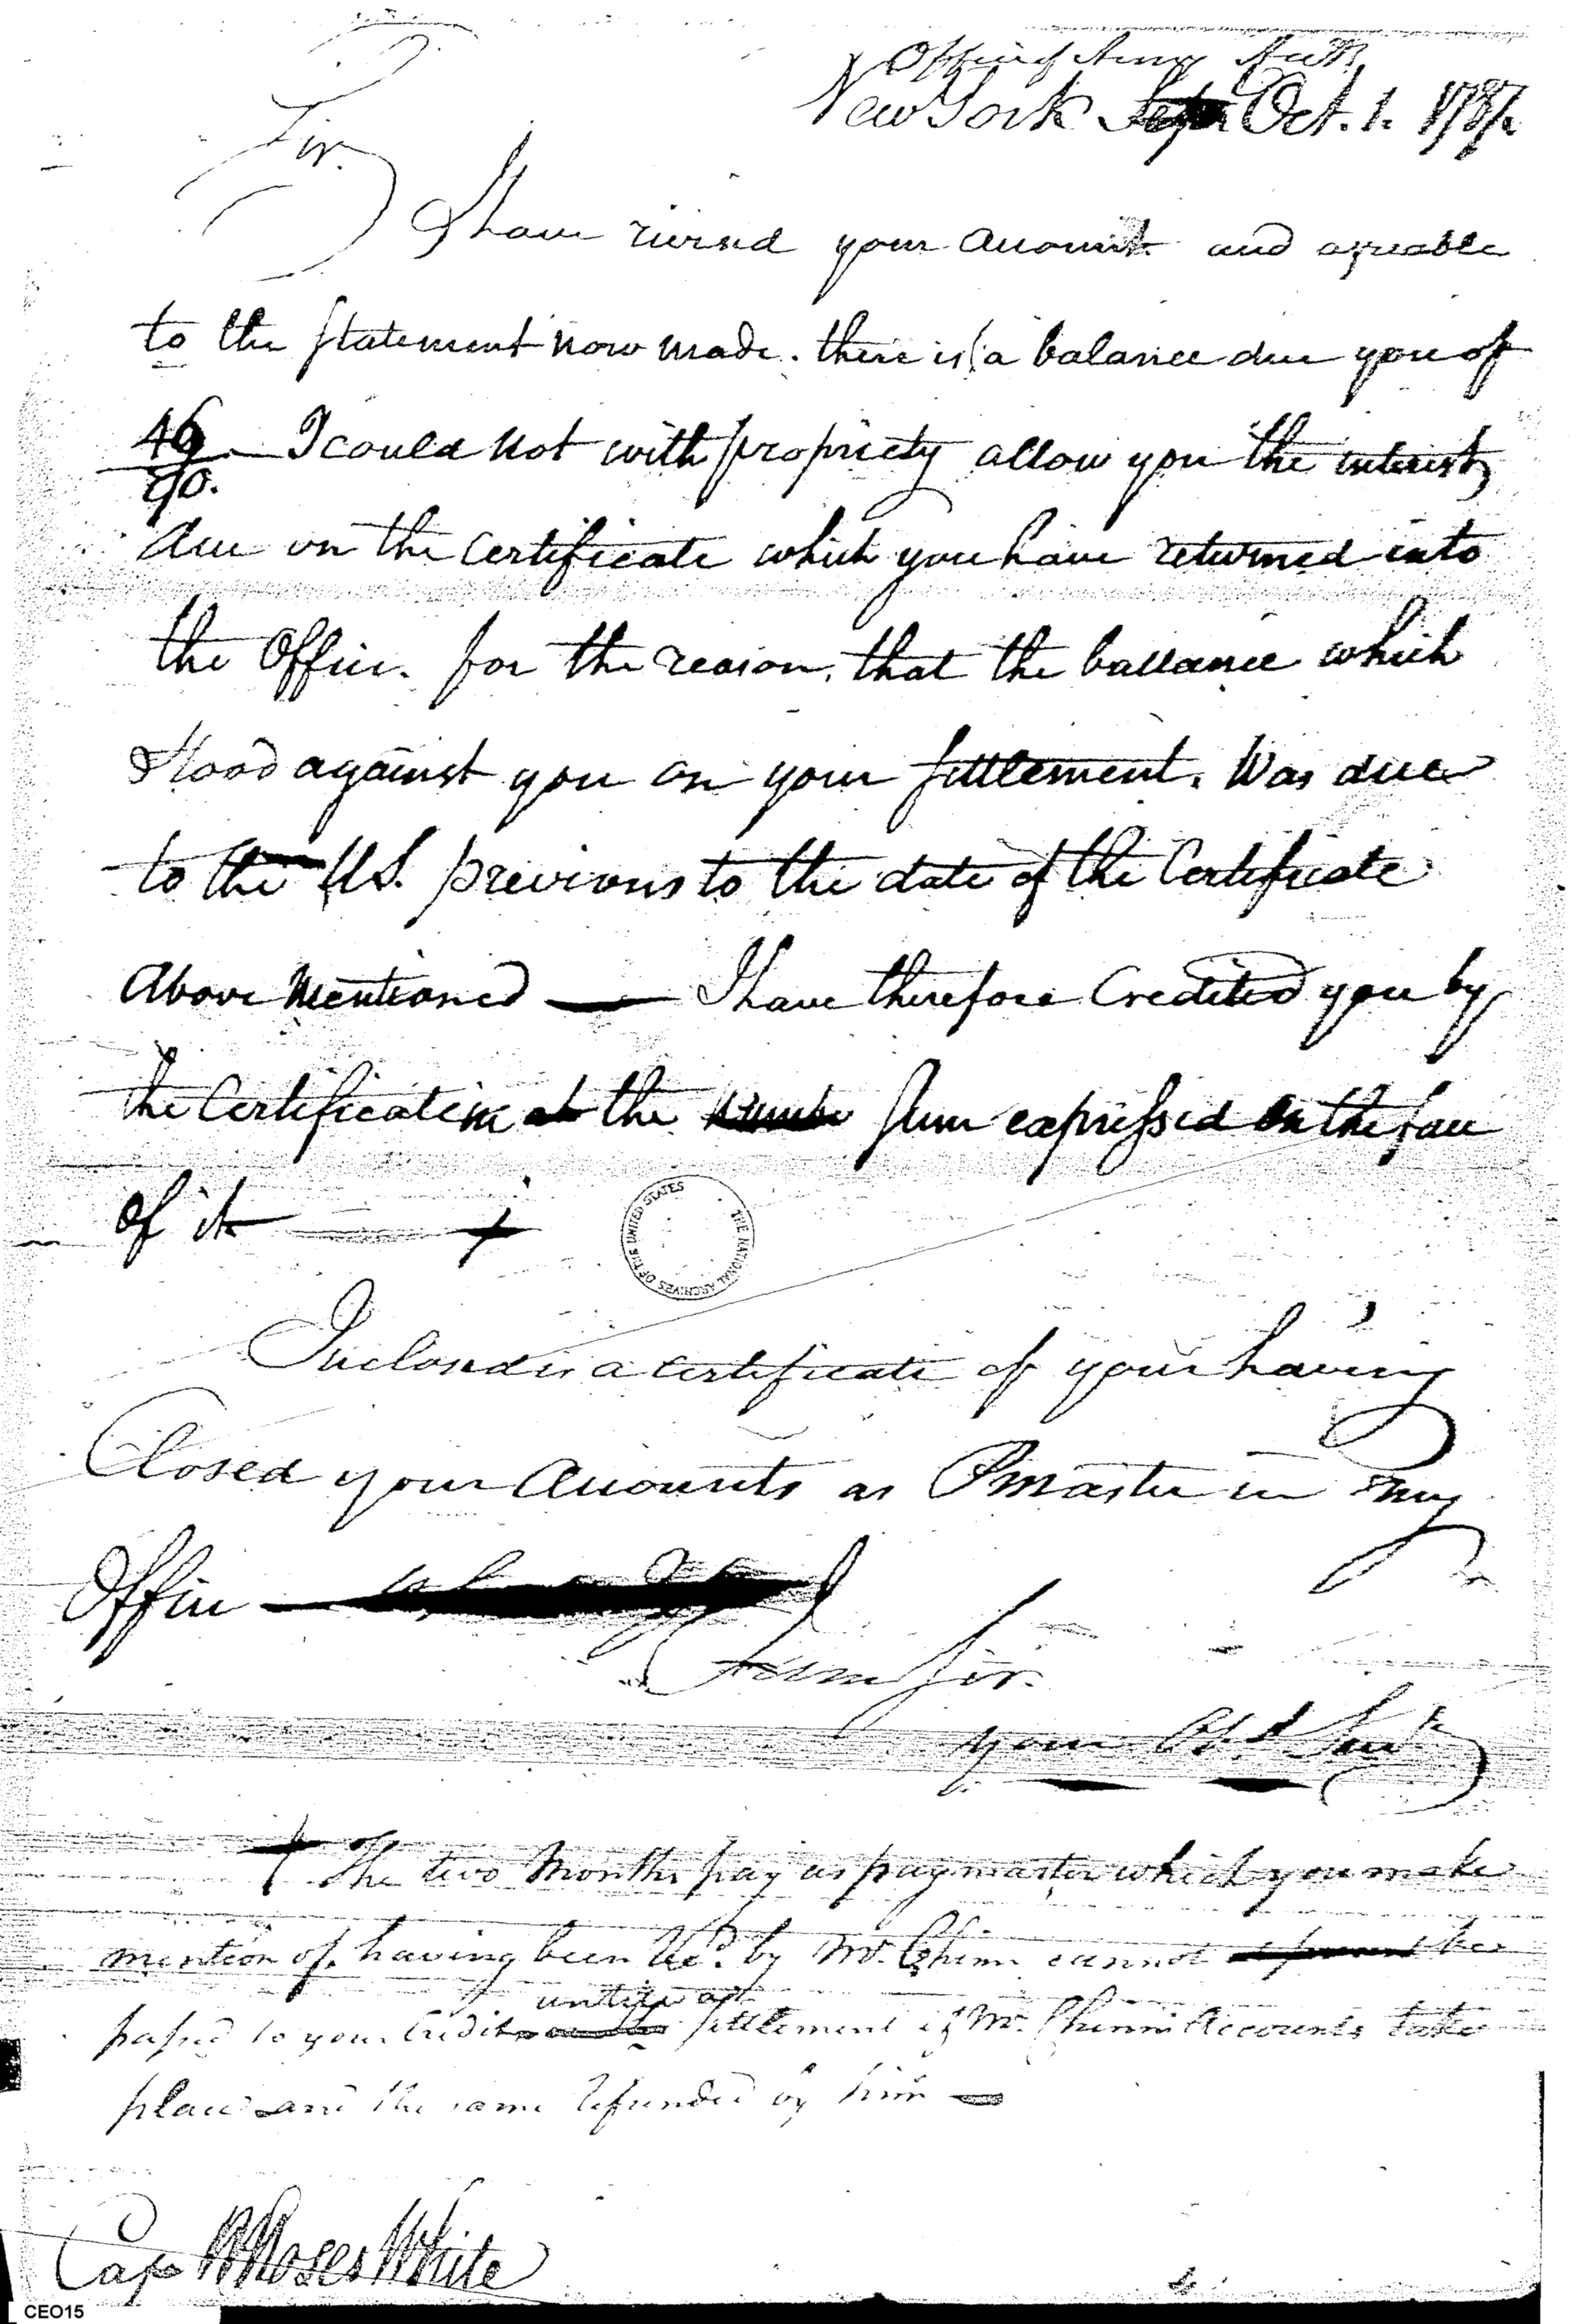 Office of Army Acctts
New York Sept Oct. 1. 1787.
Sir.
I have revised your account and agreable
to the statement now made. there is a balance due you of
46/90. I could not with propriety allow you the interest
due on the Certificate which you have returned into
the Office. for the reason, that the ballance which
Stood against you on your settlement. Was due
to the U.S. previous to the date of the Certificate
Above Mentioned — I have therefore Credited you by
the Certificate at the sum expressed on the face
of it +
THE NATIONAL ARCHIVES OF THE UNITED STATES
Inclosed is a certificate of your having
Closed your Accounts as P master in my
Office —
I am Sir.
your Obt Servt
+ The two Months pay as paymaster which you make
mention of, having been Recd. by Mr. Chinn cannot be
until a
passed to your Credit settlement of Mr. Chinn Accounts take
place and the same refunded by him —
Capt Moses White
CEO15